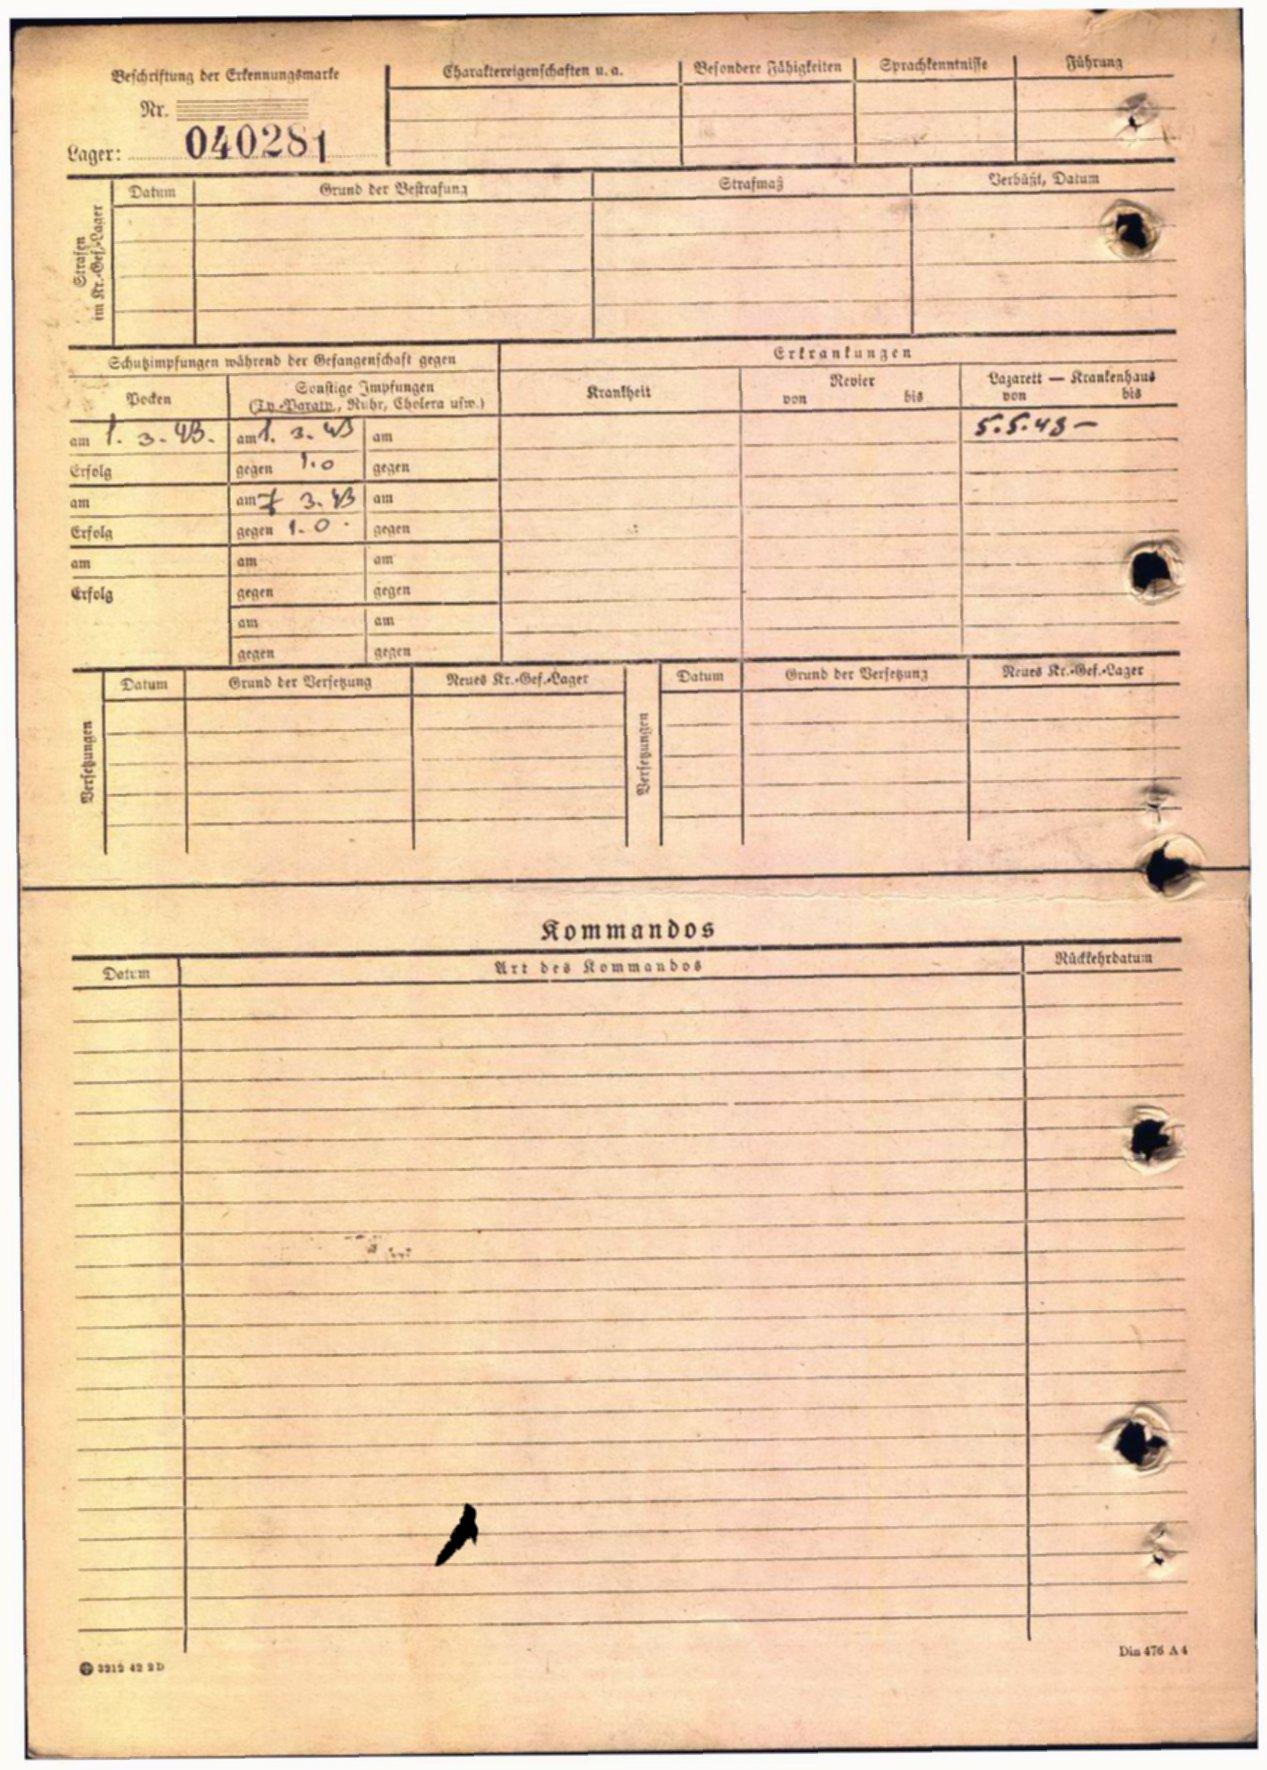 Beschriftung der Erkennungsmarke
Nr.
Lager: 040281
Charaktereigenschaften u. a.
Besondere Fähigkeiten
Sprachkenntnisse
Führung
Strafen
im Kr.-Gef.-Lager
Datum
Grund der Bestrafung
Strafmaß
Verbüßt, Datum
Schutzimpfungen während der Gefangenschaft gegen
Erkrankungen
Pocken
Sonstige Impfungen
(Ty.-Paraty., Ruhr, Cholera usw.)
Krankheit
Revier
von bis
Lazarett — Krankenhaus
von bis
am 1. 3. 43. am 1. 3. 43 am 5.5.43 —
Erfolg gegen 1.0 gegen
am am 7 3. 43 am
Erfolg gegen 1.0 gegen
am am am
Erfolg gegen gegen
am am
gegen gegen
Versetzungen
Datum
Grund der Versetzung
Neues Kr.-Gef.-Lager
Versetzungen
Datum
Grund der Versetzung
Neues Kr.-Gef.-Lager
Kommandos
Datum
Art des Kommandos
Rückkehrdatum
3212 42 2 D
Din 476 A 4